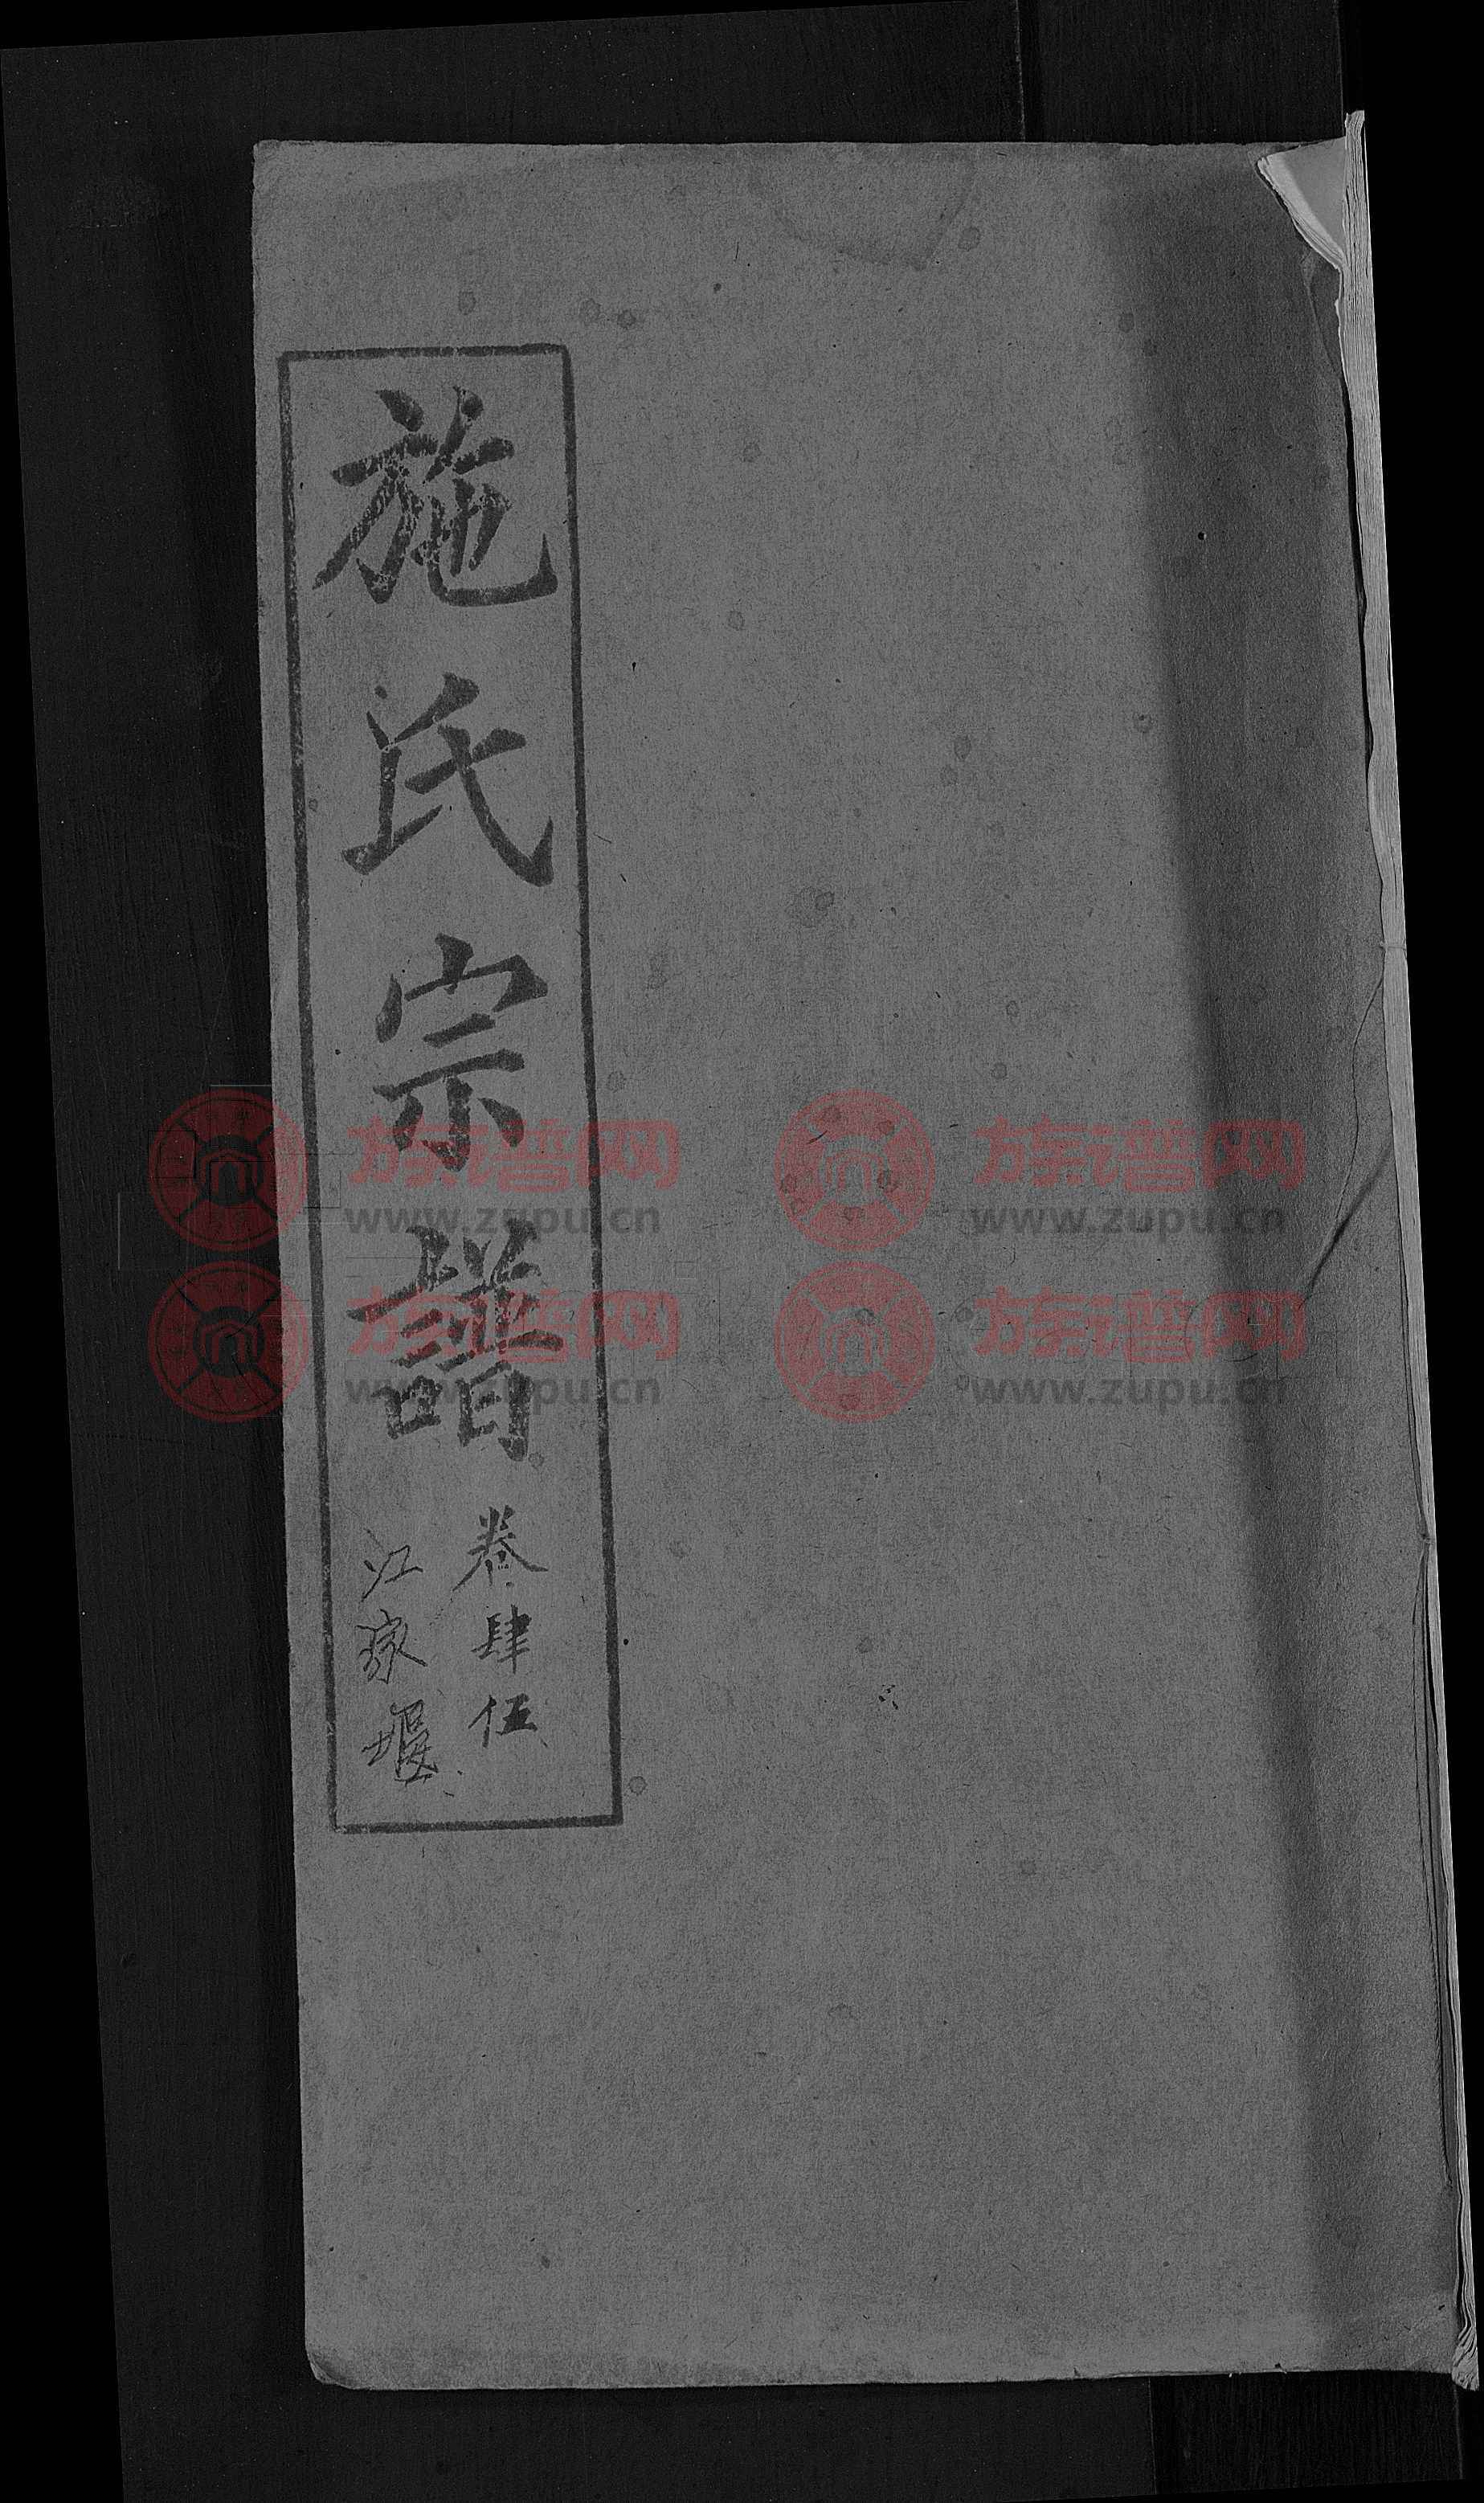 施氏宗譜
卷肆伍
江家堰
族谱网
www.zupu.cn
族谱网
www.zupu.cn
族谱网
www.zupu.cn
族谱网
www.zupu.cn